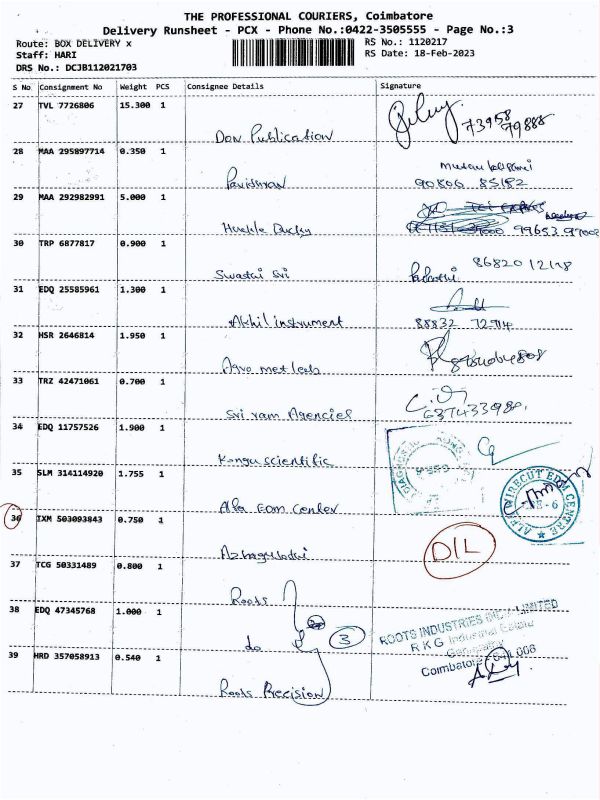 THE PROFESSIONAL COURIERS, Coimbatore
Delivery Runsheet - PCX - Phone No.:0422-3505555 - Page No.:3
Route: BOX DELIVERY x RS No.: 1120217
Staff: HARI RS Date: 18-Feb-2023
DRS No.: DCJB112021703
S No Consignment No Weight PCS Consignee Details Signature
27 TVL 7726806 15.300 1
Don Publication 73958 79888
28 MAA 295897714 0.350 1
90806 85182
29 MAA 292982991 5.000 1
99653 97002
30 TRP 6877817 0.900 1
Swastai Sri
31 EDQ 25585961 1.300 1
Akhil instrument 88832 72714
32 HSR 2646814 1.950 1
Agro met leds
33 TRZ 42471061 0.700 1
Sri ram Agencies
34 EDQ 11757526 1.900 1
Kongu scientific
35 SLM 314114920 1.755 1
Alfa EDM Center
ALFA WIRECUT EDM CENTRE
36 IXM 503093843 0.750 1
D/L
37 TCG 50331489 0.800 1
Roots
38 EDQ 47345768 1.000 1
do 3
ROOTS INDUSTRIES LIMITED
R K G Industrial Estate
Coimbatore
39 HRD 357058913 0.540 1
Roots Precision